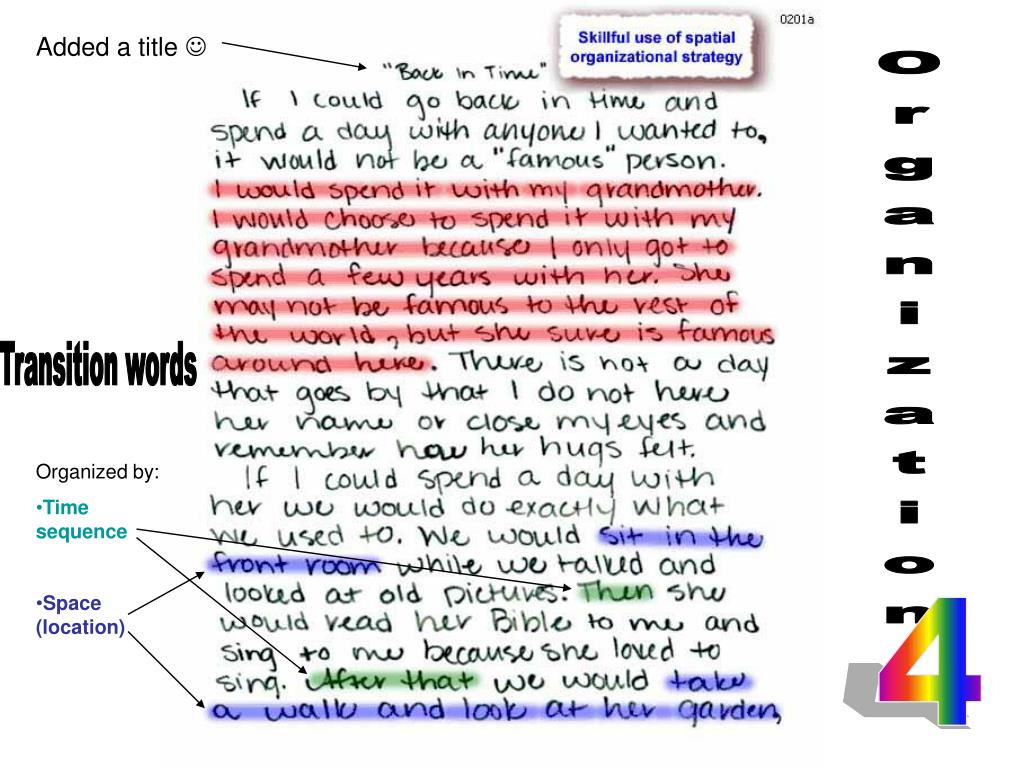 0201a
Added a title ☺
Skillful use of spatial
organizational strategy
Organization
4
Transition words
Organized by:
•Time
sequence
•Space
(location)
"Back In Time"
If I could go back in time and
spend a day with anyone I wanted to,
it would not be a "famous" person.
I would spend it with my grandmother.
I would choose to spend it with my
grandmother because I only got to
spend a few years with her. She
may not be famous to the rest of
the world, but she sure is famous
around here. There is not a day
that goes by that I do not here
her name or close my eyes and
remember how her hugs felt.
If I could spend a day with
her we would do exactly what
we used to. We would sit in the
front room while we talked and
looked at old pictures. Then she
would read her Bible to me and
sing to me because she loved to
sing. After that we would take
a walk and look at her garden,